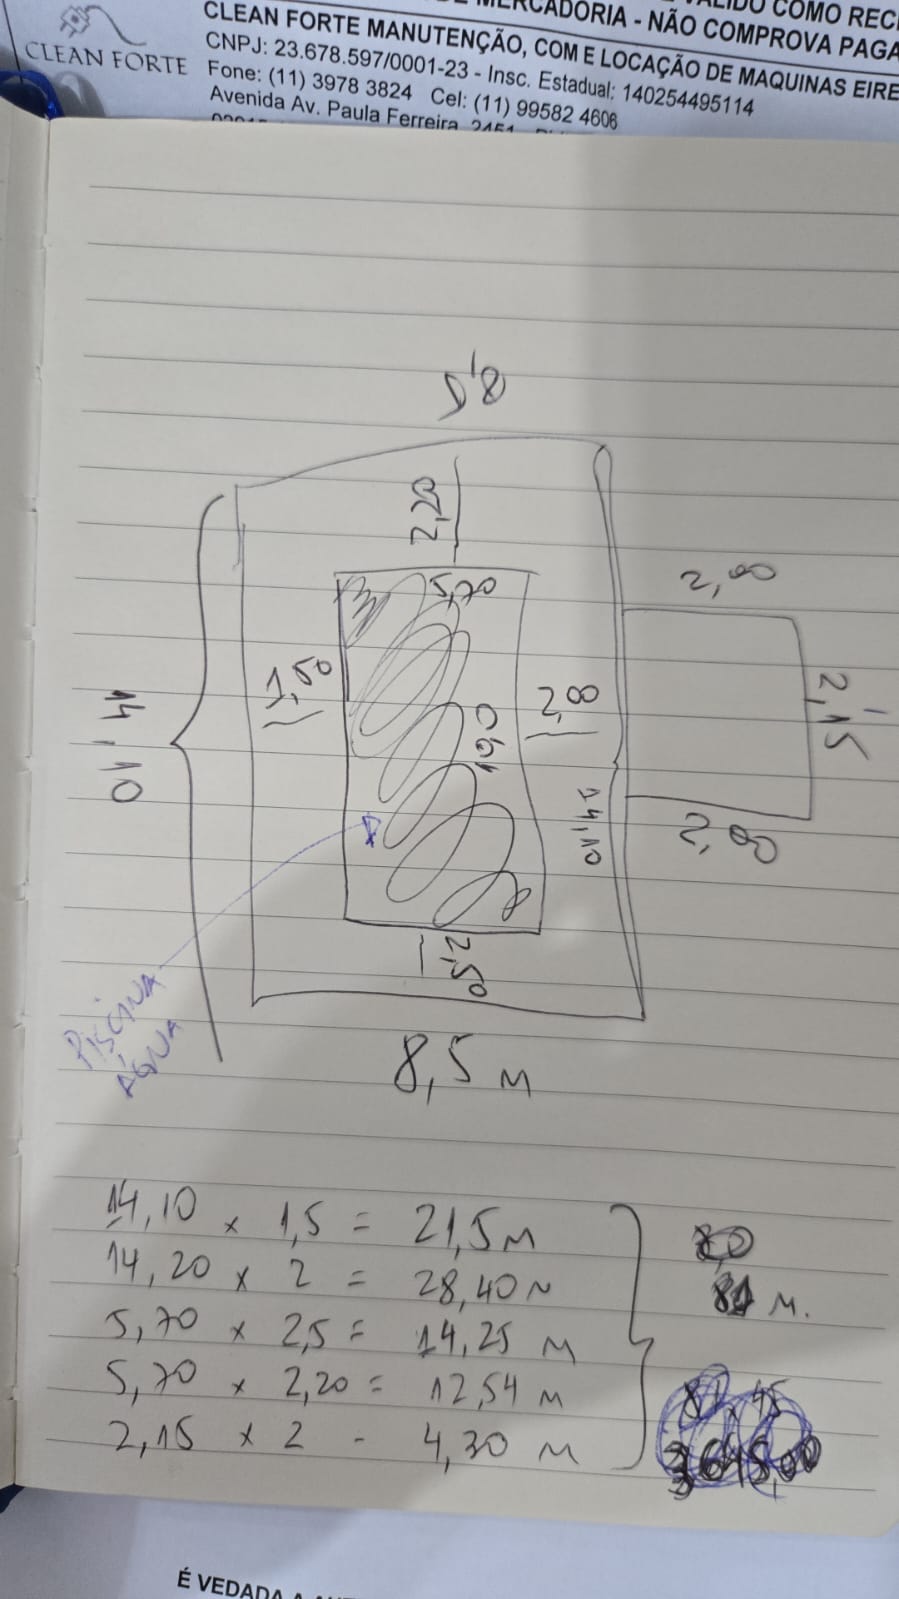 CLEAN FORTE
MERCADORIA - NÃO COMPROVA PAGA
CLEAN FORTE MANUTENÇÃO, COM E LOCAÇÃO DE MAQUINAS EIRE
CNPJ: 23.678.597/0001-23 - Insc. Estadual: 140254495114
Fone: (11) 3978 3824 Cel: (11) 99582 4606
Avenida Av. Paula Ferreira, 2451
8,5
2,20
5,70
2,00
1,50
2,00
2,15
14,10
14,10
2,00
2,50
PISCINA
ÁGUA
8,5 M
14,10 x 1,5 = 21,5 M
14,20 x 2 = 28,40 M
5,70 x 2,5 = 14,25 M
81 M.
5,70 x 2,20 = 12,54 M
2,15 x 2 - 4,30 M
81 x 45
3645,00
É VEDADA A